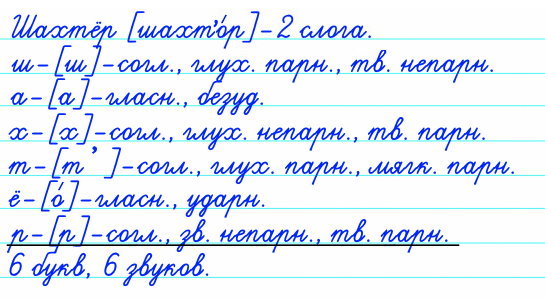 Шахтёр [шахт’о́р]-2 слога.
ш-[ш]-согл., глух. парн., тв. непарн.
а-[а]-гласн., безуд.
х-[х]-согл., глух. непарн., тв. парн.
т-[т’]-согл., глух. парн., мягк. парн.
ё-[о́]-гласн., ударн.
р-[р]-согл., зв. непарн., тв. парн.
6 букв, 6 звуков.